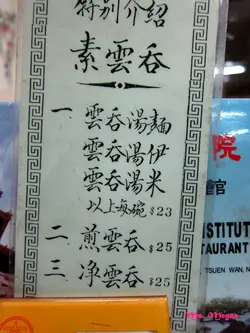 特別介紹
素雲吞
一 雲吞湯麵
雲吞湯伊
雲吞湯米
以上每碗 $23
二 煎雲吞 $25
三 净雲吞 $25
院
館
STITUT
TAURANT
TSUEN WAN, N
Mrs. Megan